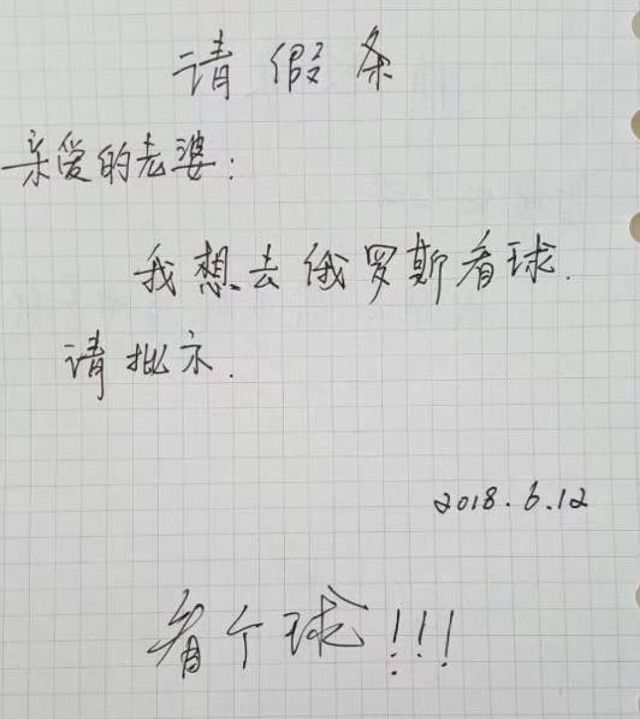 请假条
亲爱的老婆:
我想去俄罗斯看球.
请批示.
2018.6.12
看个球!!!